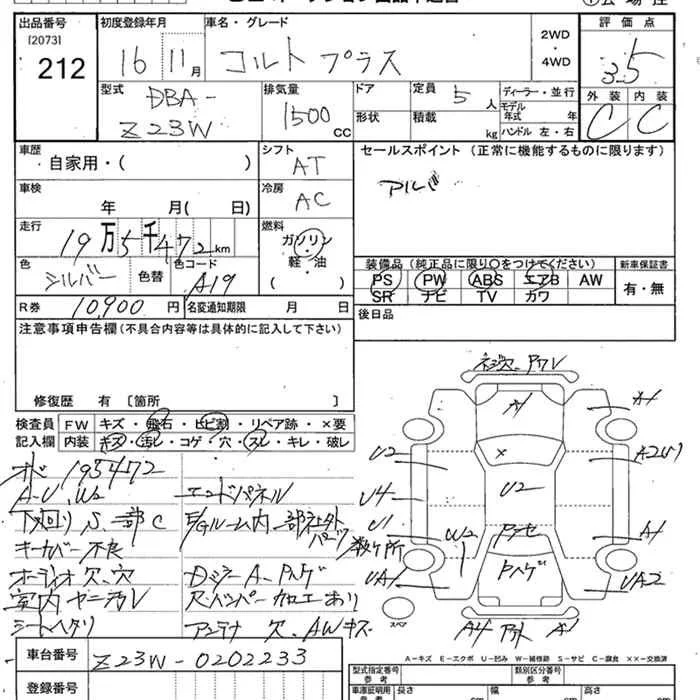 出品番号
[2073]
212
初度登録年月
16 11月
車名・グレード
コルト プラス
2WD
・
4WD
評価点
3.5
外装 内装
C C
型式
DBA-
Z23W
排気量
1500 CC
ドア
形状
定員 5 人
積載 kg
ディーラー・並行
モデル年式 年
ハンドル 左・右
車歴
自家用・( )
シフト
AT
セールスポイント (正常に機能するものに限ります)
アルミ
車検
年 月( 日)
冷房
AC
走行
19万5千472km
燃料
ガソリン
・
軽・油
( )
色
シルバー
色替
色コード
A19
装備品 (純正品に限り○をつけてください)
PS PW ABS エアB AW
SR ナビ TV カワ
新車保証書
有・無
R券 10,900 円
名変通知期限 月 日
後日品
注意事項申告欄 (不具合内容等は具体的に記入して下さい)
修復歴 有 〔箇所 〕
検査員記入欄
FW キズ・飛石・ヒビ割・リペア跡・×要
内装 キズ・汚レ・コゲ・穴・スレ・キレ・破レ
オド 195472
A-U、W2
下廻り S、一部C
キーカバー不良
オーディオ欠、穴
室内ヤニ汚レ
シートヘタリ
エンドパネル
E/Gルーム内一部社外パーツ
DミラーA、Pハゲ
Rバンパー加工あり
アンテナ欠、AWキズ
ネジ穴、Pワレ
A1
U2
A2
U4
U2
U1
W2
数ヶ所
A1
Pハゲ
UA1
UA2
スペア
A4
A1
A-キズ E-エクボ U-凹み W-補修跡 S-サビ C-腐食 ××-交換済
車台番号 Z23W-0202233
登録番号
型式指定番号
参考
類別区分番号
参考
車庫証明用
参考
長さ cm
幅 cm
高さ cm